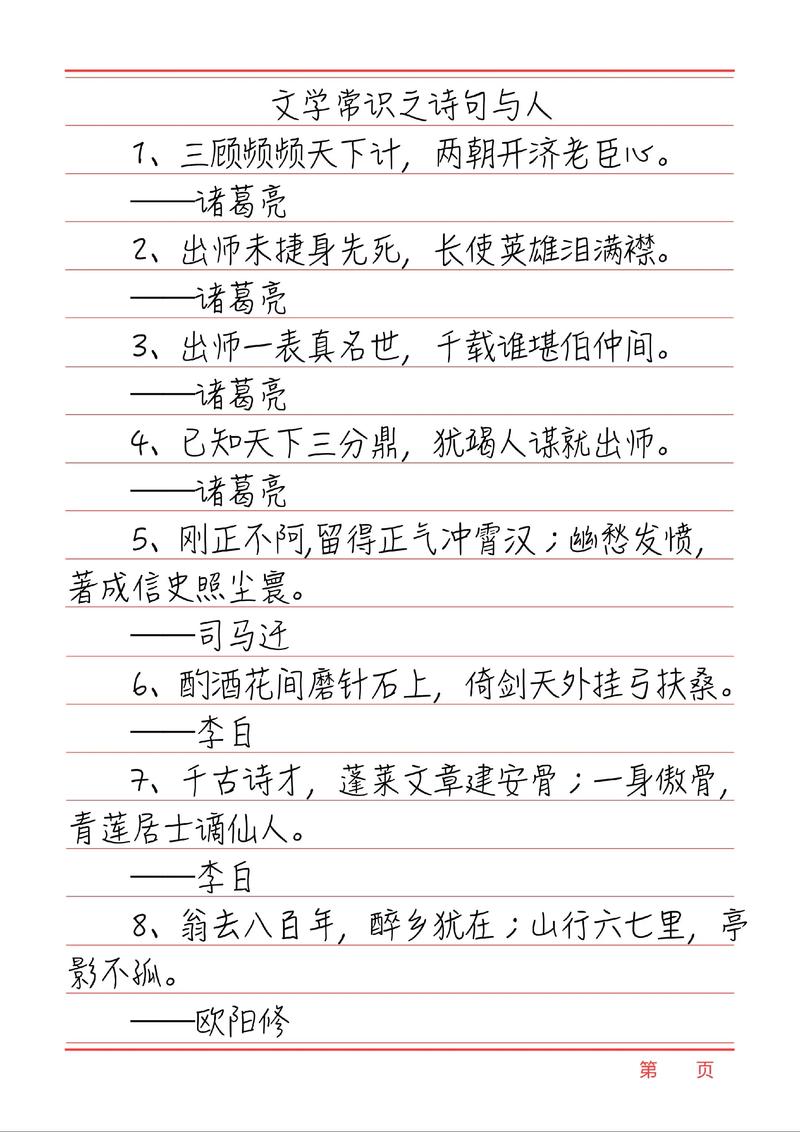 文学常识之诗句与人
1、三顾频频天下计，两朝开济老臣心。
——诸葛亮
2、出师未捷身先死，长使英雄泪满襟。
——诸葛亮
3、出师一表真名世，千载谁堪伯仲间。
——诸葛亮
4、已知天下三分鼎，犹竭人谋就出师。
——诸葛亮
5、刚正不阿,留得正气冲霄汉；幽愁发愤，
著成信史照尘寰。
——司马迁
6、酌酒花间磨针石上，倚剑天外挂弓扶桑。
——李白
7、千古诗才，蓬莱文章建安骨；一身傲骨，
青莲居士谪仙人。
——李白
8、翁去八百年，醉乡犹在；山行六七里，亭
影不孤。
——欧阳修
第 页